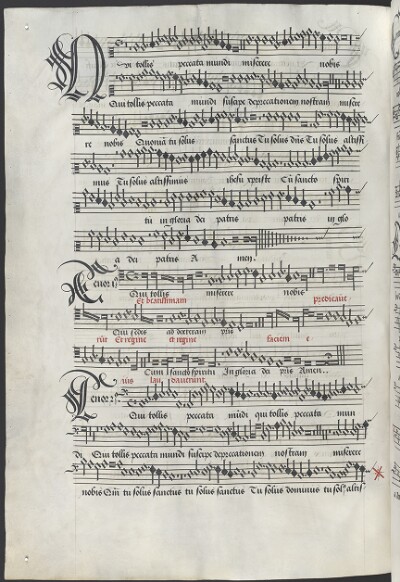 Qui tollis peccata mundi miserere nobis
Qui tollis peccata mundi suscipe deprecationem nostram misere
re nobis Quoniā tu solus sanctus Tu solus dn̄s Tu solus altissi
mus Tu solus altissimus ihesu xpriste Cū sancto spiri
tu in gloria dei patris patris in glo
a dei patris A men.
Tenor
Qui tollis miserere nobis
Et beatissimam predicaue
Qui sedes ad dexteram pris
rūt Et regine et regine faciem e
Cum sancto spiritu In gloria dei pris Amen..
ius lau dauerunt
Tenor
Qui tollis peccata mūdi qui tollis peccata mun
di Qui tollis peccata mundi suscipe deprecationem nostram miserere
nobis Qm̄ tu solus sanctus tu solus sanctus Tu solus dominus tu sol9 altis